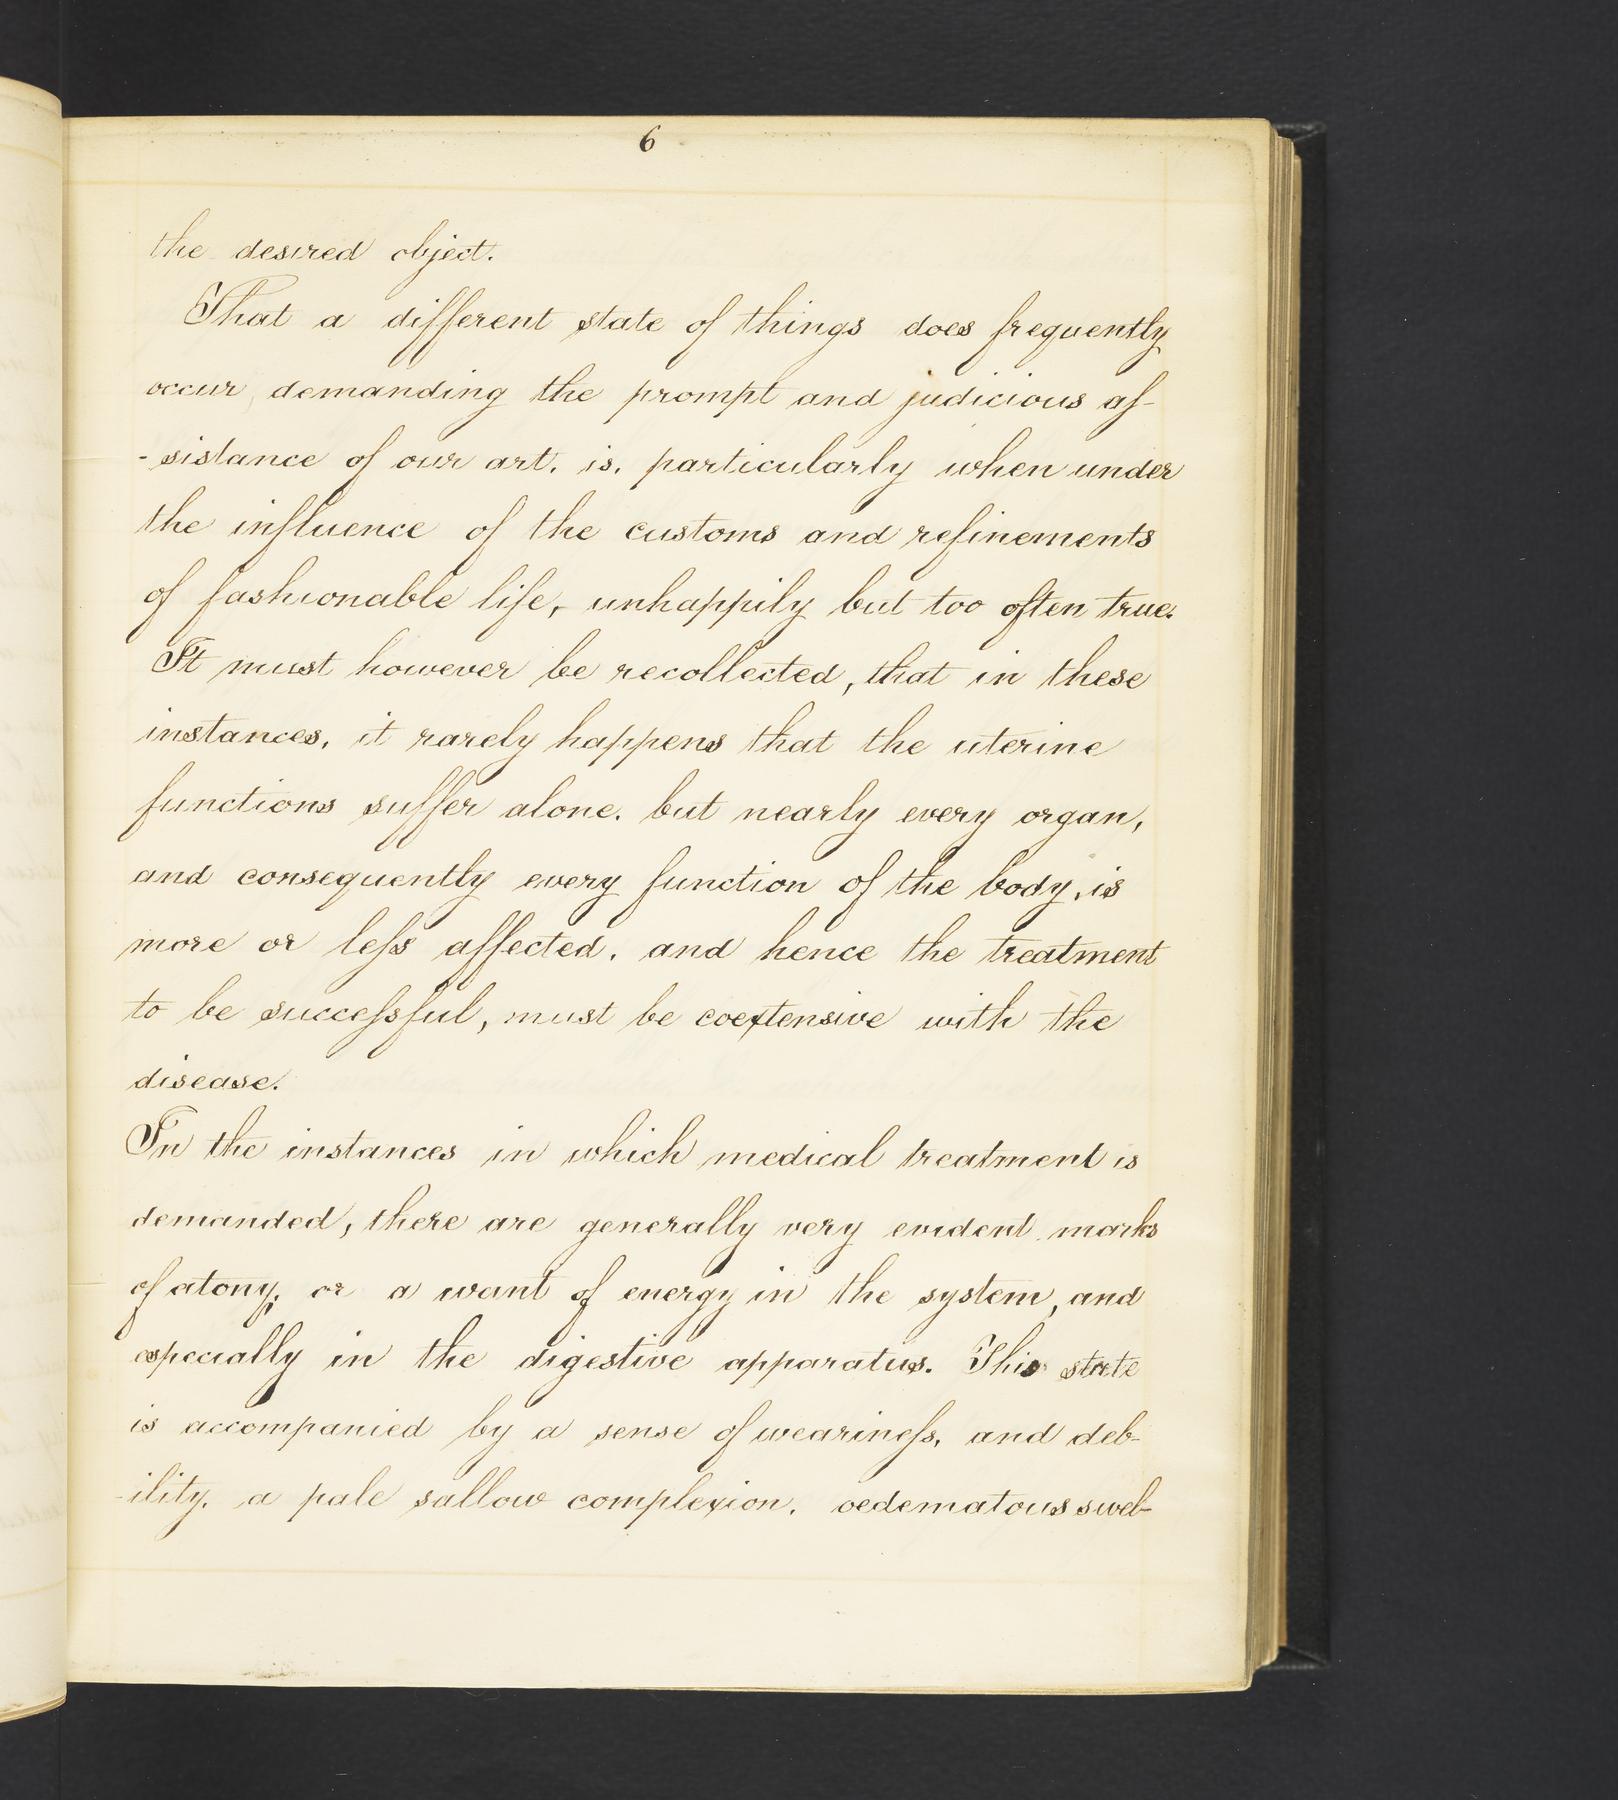 6
the desired object.
That a different state of things does frequently
occur, demanding the prompt and judicious as-
-sistance of our art, is, particularly when under
the influence of the customs and refinements
of fashionable life, unhappily but too often true.
It must however be recollected, that in these
instances, it rarely happens that the uterine
functions suffer alone, but nearly every organ,
and consequently every function of the body, is
more or less affected, and hence the treatment
to be successful, must be coextensive with the
disease.
In the instances in which medical treatment is
demanded, there are generally very evident marks
of atony, or a want of energy in the system, and
especially in the digestive apparatus. This state
is accompanied by a sense of weariness, and deb-
-ility, a pale sallow complexion, oedematous swel-